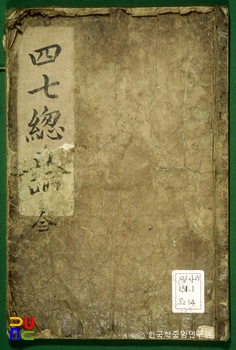 四七總論 全
151.1
한국학중앙연구원